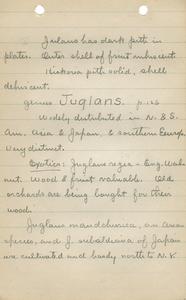 Juglans has dark pith in
plates. Outer shell of fruit indehiscent.
Hickoria pith solid, shell
dehiscent.
genus Juglans. p. 126
Widely distributed in N. & S.
Am. Asia & Japan, & southern Europe
Very distinct.
Exotics: Juglans regia - Eng. Wal-
nut. Wood & fruit valuable. Old
orchards are being bought for their
wood.
Juglans mandchurica, an Asian
species, and J. sieboldiana of Japan
are cultivated and hardy north to N.Y.